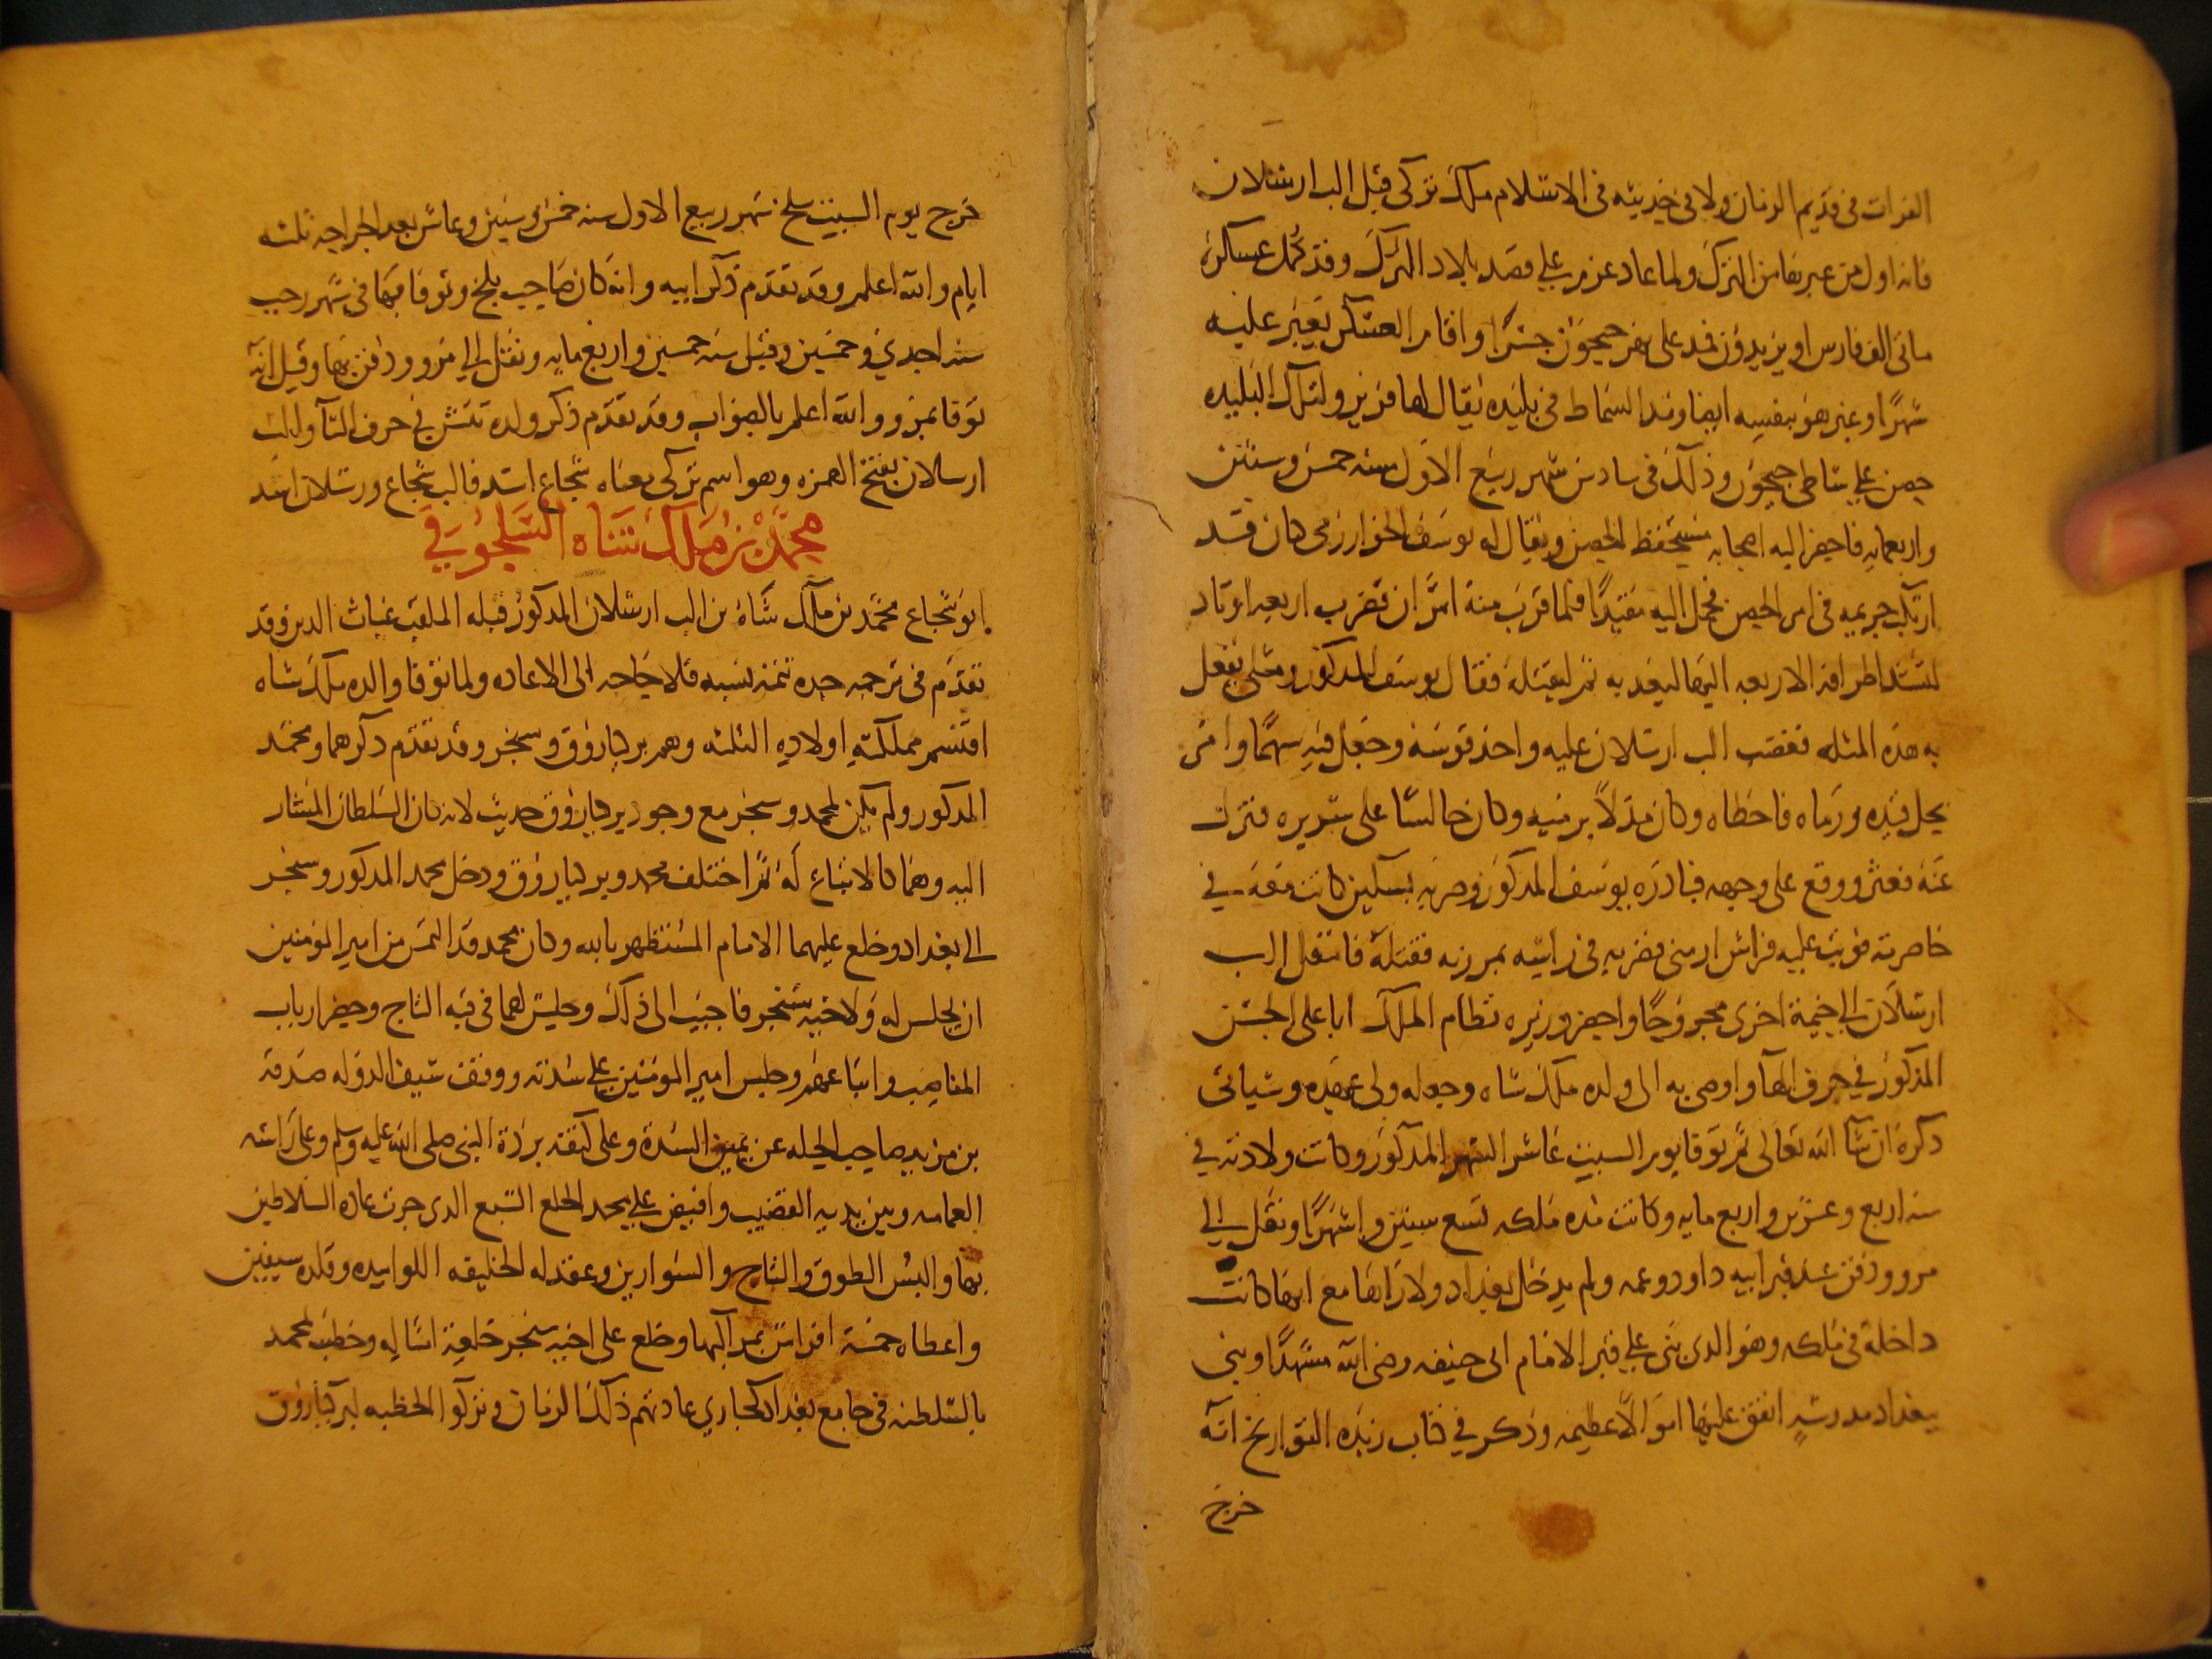 الفرات في قديم الزمان ولا في حديثه في الاسلام ملك تركي قبل الب ارسلان
فانه اول من عبرها من الترك ولما عاد عزم على قصد بلاد الترك وقد كمل عسكره
مائى الف فارس او يزيدون فمد على نهر جيحون جسرًا واقام العسكر يعبر عليه
شهرًا وعبر هو بنفسه ايضا ومد السماط في بليده يقال لها فربر ولتلك البليده
حصن على شاطى جيحون وذلك في سادس شهر ربيع الاول سنه خمس وستين
واربعمايه فاحضر اليه اصحابه مستحفظ الحصن ويقال له يوسف الخوارزمى كان قد
ارتكب جريمه في امر الحصن فحمل اليه مقيدًا فلما قرب منه امر ان تضرب اربعه اوتاد
لتشد اطرافه الاربعه اليها ليعذبه ثم ليقتله فقال يوسف المذكور ومثلى يفعل
به هذه المثله فغضب الب ارسلان عليه واخذ قوسه وجعل فيه سهمًا وامر
بحل قيده ورماه فاخطاه وكان مدلاً برميه وكان جالسًا على سريره فنزل
عنه فعثر ووقع على وجهه فبادره يوسف المذكور وضربه بسكين كانت معه في
خاصرته فوثب عليه فراش ارمنى فضربه في راسه بمرزبه فقتله فانتقل الب
ارسلان الى خيمة اخرى مجروحًا واحضر وزيره نظام الملك ابا على الحسن
المذكور في حرف الحآ واوصى به الى ولده ملك شاه وجعله ولى عهده وسياتى
ذكره ان شآ الله تعالى ثم توفا يوم السبت عاشر الشهر المذكور وكانت ولادته في
سنه اربع وعشرين واربع مايه وكانت مده ملكه تسع سنين واشهرًا ونقل الى
مرو ودفن عند قبر ابيه داود وعمه ولم يدخل بغداد ولا رآها مع انها كانت
داخلة في ملكه وهو الذى بنى على قبر الامام ابى حنيفه رضى الله مشهدًا وبنى
ببغداد مدرسة انفق عليها اموالاً عظيمه وذكر في كتاب زبده التواريخ انه
خرج
خرج يوم السبت سلخ شهر ربيع الاول سنه خمس وستين وعاش بعد الجراحه ثلثه
ايام والله اعلم وقد تقدم ذكر ابيه وانه كان صاحب بلخ وتوفا بها في شهر رجب
سنه احدى وخمسين وقيل سنه خمسين واربع مايه ونقل الى مرو ودفن بها وقيل انه
توفا بمرو والله اعلم بالصواب وقد تقدم ذكر ولده تتش في حرف التآ والب
ارسلان بفتح الهمزه وهو اسم تركى معناه شجاع اسد فالب شجاع ورسلان اسد
محمد بن ملك شاه السلجوقي
ابو شجاع محمد بن ملك شاه بن الب ارسلان المذكور قبله الملقب غياث الدين وقد
تقدم في ترجمه جده تتمة نسبه فلا حاجه الى الاعاده ولما توفا والده ملك شاه
اقتسم مملكته اولاده الثلثه وهم بركياروق وسنجر وقد تقدم ذكرهما ومحمد
المذكور ولم يكن لمحمد وسنجر مع وجود بركياروق حديث لانه كان السلطان المشار
اليه وهما كالاتباع له ثم اختلف محمد وبركياروق ودخل محمد المذكور وسنجر
الى بغداد وخلع عليهما الامام المستظهر بالله وكان محمد قد التمس من امير المومنين
ان يجلس له ولاخيه سنجر فاجيب الى ذلك وجلس لهما في قبه التاج وحضر ارباب
المناصب واتباعهم وجلس امير المومنين على سدته ووقف سيف الدوله صدقه
بن مزيد صاحب الحله عن يمين السدة وعلى كتفه بردة النبى صلى الله عليه وسلم وعلى راسه
العمامه وبين يديه القضيب وافيض على محمد الخلع السبع الذى جرت عاده السلاطين
بها والبس الطوق والتاج والسوارين وعقد له الخليفه اللوا بيده وقلده سيفين
واعطاه خمسة افراس بمراكبها وخلع على اخيه سنجر خلعة امثاله وخطب لمحمد
بالسلطنه في جامع بغداد كجاري عادتهم ذلك الزمان وتركوا الخطبه لبركياروق